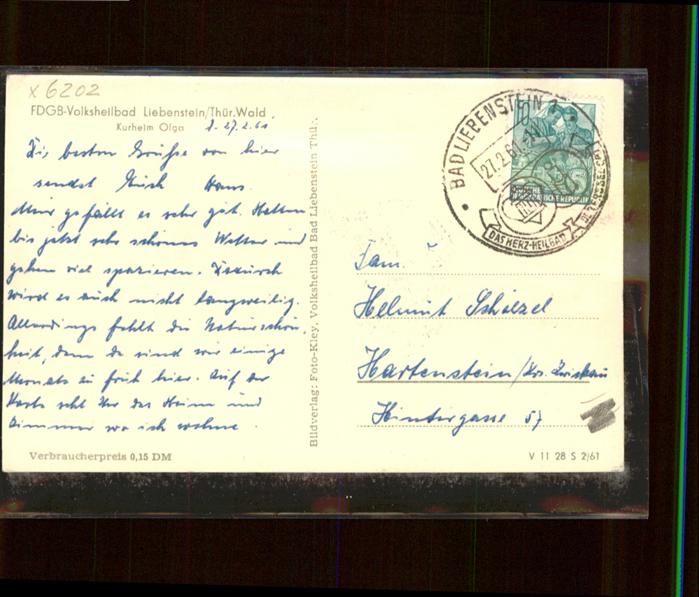 x 6202
FDGB-Volksheilbad Liebenstein/Thür. Wald
Kurheim Olga
27.2.61
Die besten Grüße von hier
sendet Euch Hans.
Mir gefällt es sehr gut. Hatten
bis jetzt sehr schönes Wetter und
gehen viel spazieren. Dadurch
wird es auch nicht langweilig.
Allerdings fehlt die Naturschön,
heit, denn da sind wir einige
Monate zu früh hier. Auf der
Karte seht Ihr das Heim und
Zimmer wo ich wohne.
Verbraucherpreis 0,15 DM
Bildverlag: Foto-Kley, Volksheilbad Bad Liebenstein Thür.
BAD LIEBENSTEIN 1
27.2.61
DAS HERZ-HEILBAD
10
Fam.
Helmut Schölzel
Hartenstein/Krs. Zwickau
Hintergasse 57
V 11 28 S 2/61